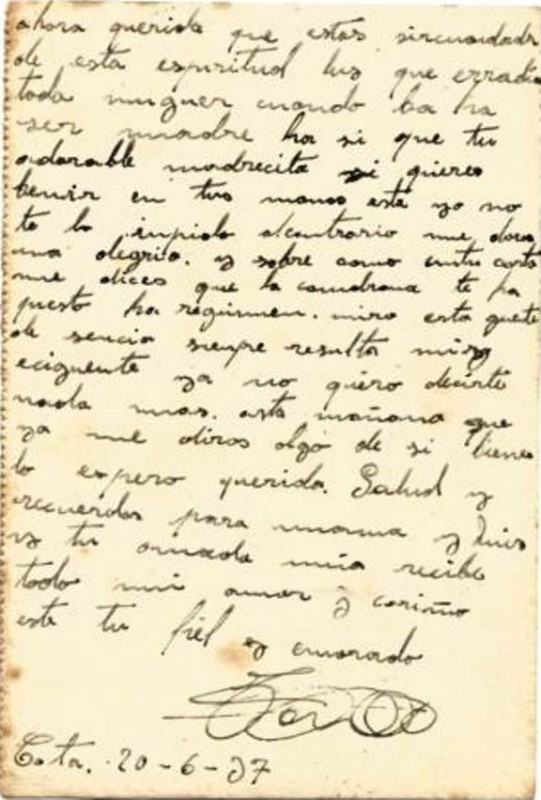 ahora querida que estas sircundada
de esta espiritud luz que erradia
toda muguer cuando ba ha
ser madre ha si que tu
adorable madrecita si quieres
benir en tus manos está yo no
te lo impido alcontrario me daras
una alegria. y sobre como en tu carta
me dices que la comadrona te ha
puesto ha regimen. mira esta
de sencia siempre resulta muy
eciguente ya no quiero decirte
nada mas. asta mañana que
ya me diras algo de si tienes
lo espero querida. Salud y
recuerdos para mama y Luis
y tu amada mia recibe
todo mi amor y cariño
este tu fiel y enamorado
20-6-37